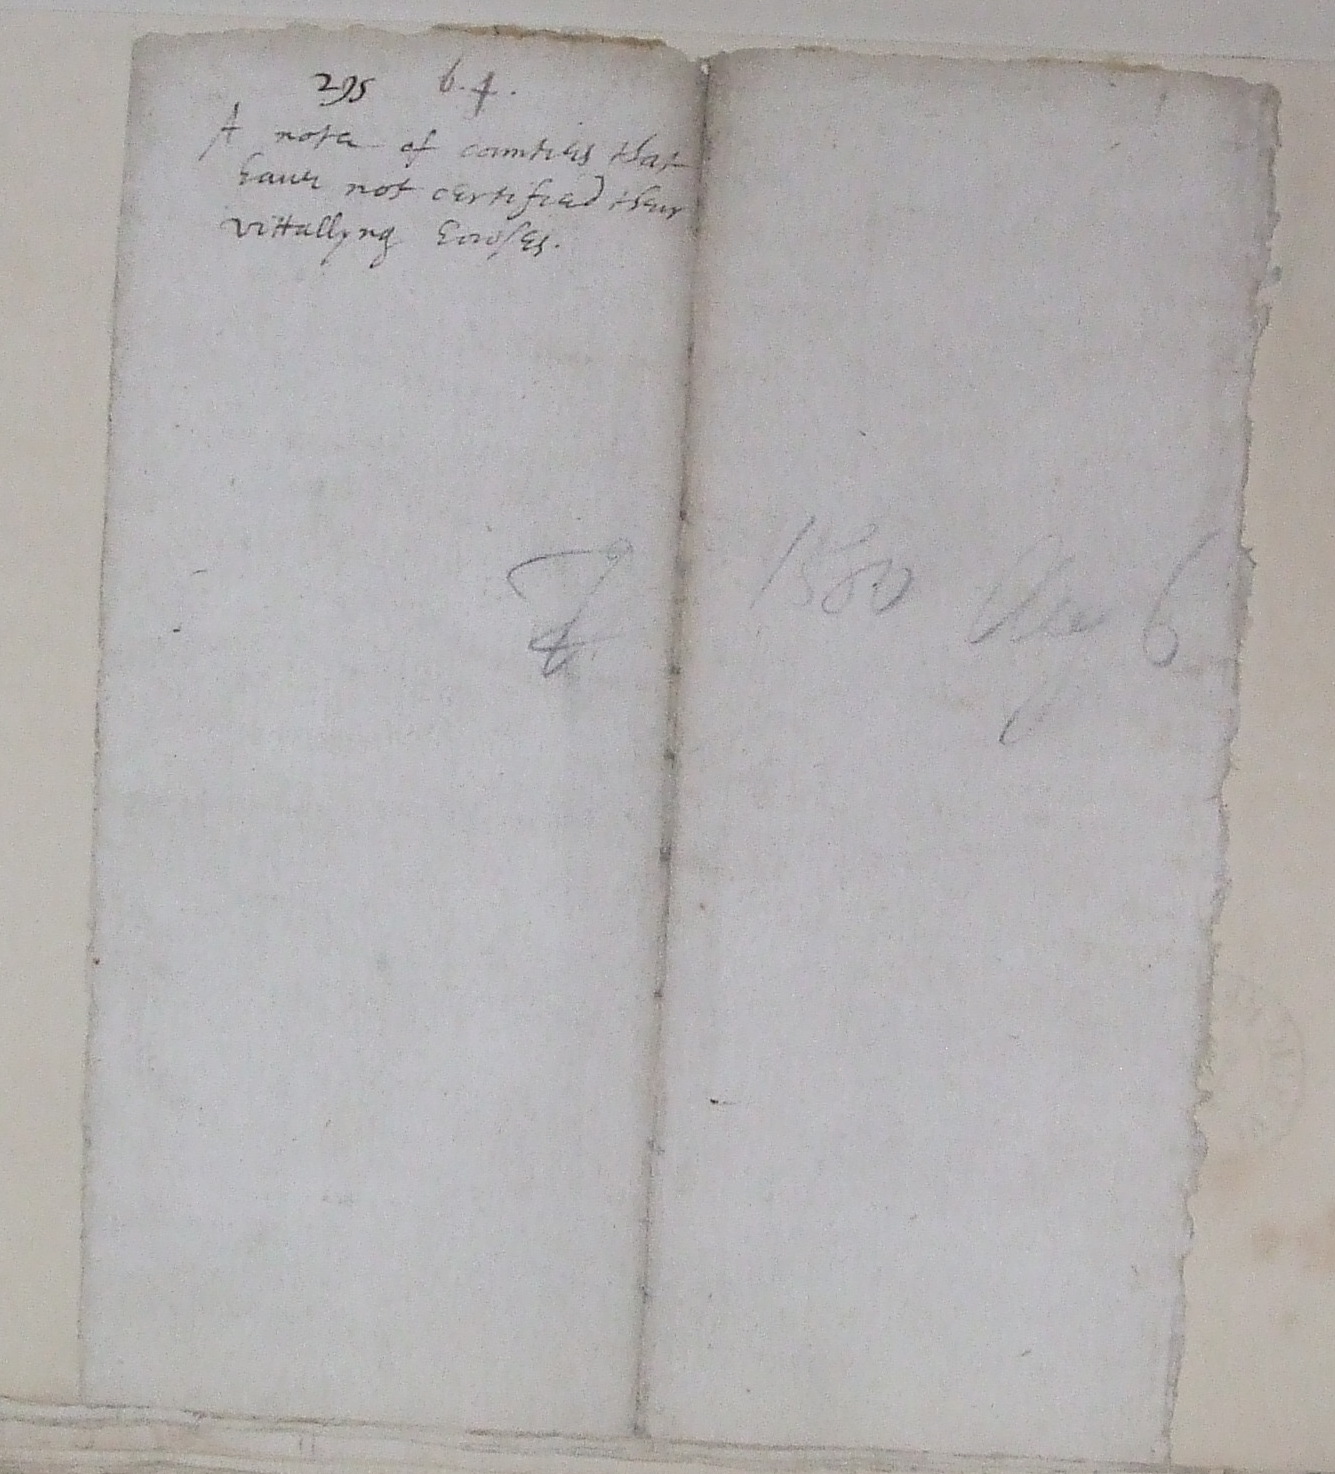 295 6.4.
A note of counties that
haue not certified their
vittallyng howses.
1580
6